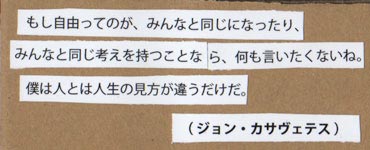 もし自由ってのが、みんなと同じになったり、
みんなと同じ考えを持つことなら、何も言いたくないね。
僕は人とは人生の見方が違うだけだ。
（ジョン・カサヴェテス）